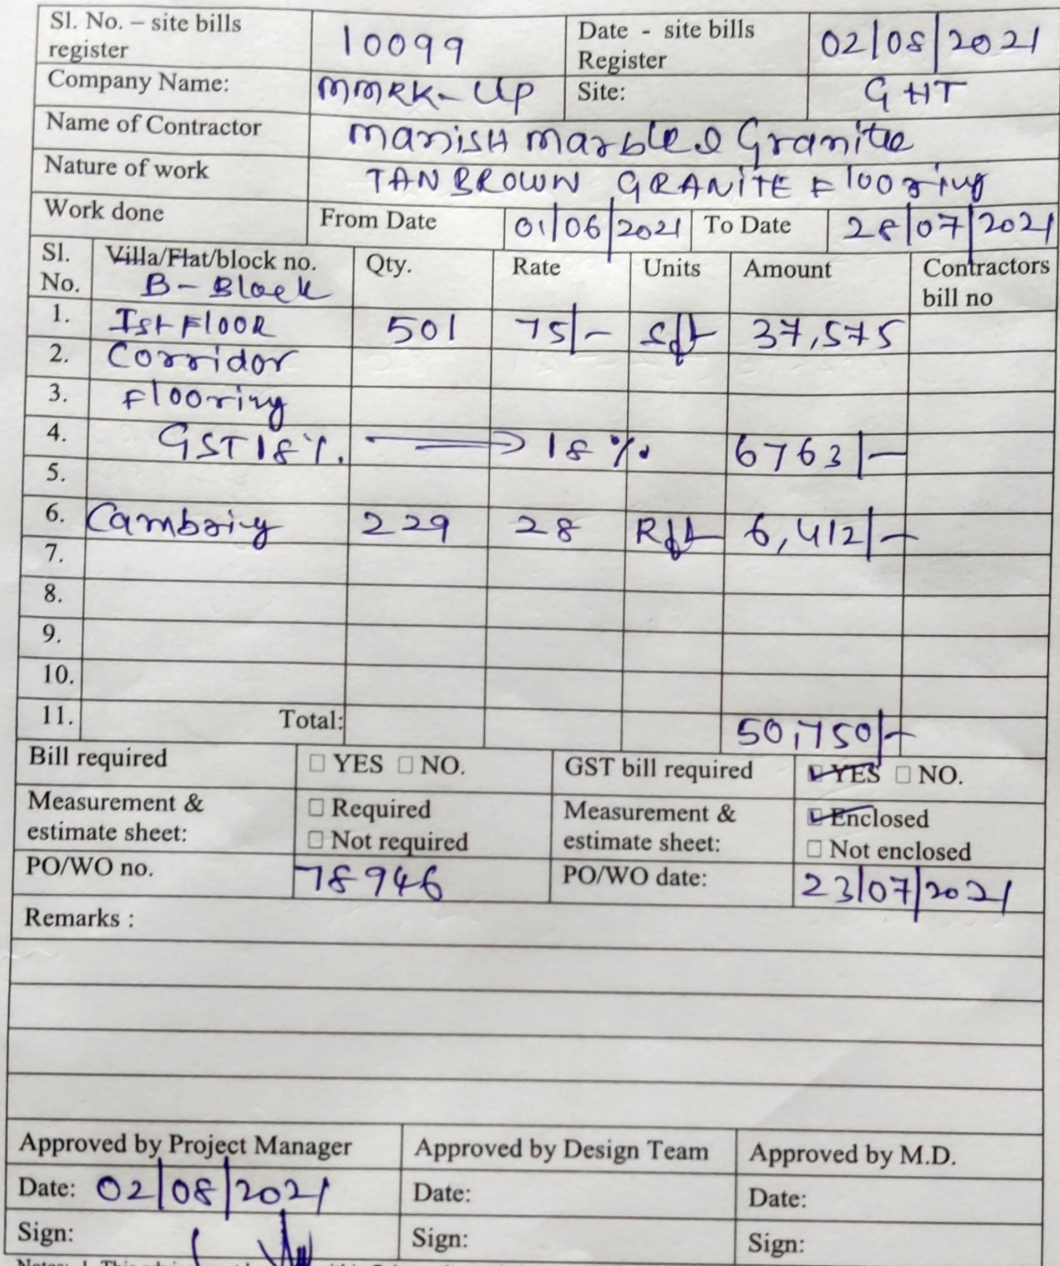 Sl. No. – site bills register 10099 Date - site bills Register 02/08/2021
Company Name: MMRK-UP Site: GHT
Name of Contractor Manish Marble & Granite
Nature of work TAN BROWN GRANITE Flooring
Work done From Date 01/06/2021 To Date 28/07/2021
Sl. No. Villa/Flat/block no. B-Block Qty. Rate Units Amount Contractors bill no
1. Ist FlOOR 501 75/- Sft 37,575
2. Corridor
3. Flooring
4. GST 18%. → 18 % 6763/-
5.
6. Cambring 229 28 Rft 6,412/-
7.
8.
9.
10.
11. Total: 50,750/-
Bill required □ YES □ NO. GST bill required □ YES □ NO.
Measurement & estimate sheet: □ Required □ Not required Measurement & estimate sheet: □ Enclosed □ Not enclosed
PO/WO no. 78946 PO/WO date: 23/07/2021
Remarks :
Approved by Project Manager Approved by Design Team Approved by M.D.
Date: 02/08/2021 Date: Date:
Sign: Sign: Sign: